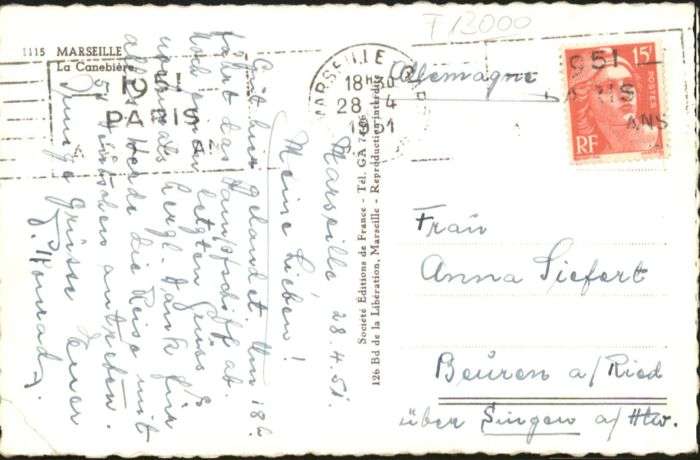 T 13000
1115 MARSEILLE
La Canebière
1951
PARIS
MARSEILLE
18H30
28 -4
1951
951
PARIS
ANS
15F
POSTES
RF
(Alemagne)
Marseille 28.4.51.
Meine Lieben!
Gut hier gelandet. Um 18 h.
fährt das Dampfschiff ab.
Noch einen letzten Gruss &
nochmals herzl. Dank für
alles. Werde die Reise mit
5 Deutschen antreten.
Innige Grüsse Euer
J. Konrad
Société Éditions de France - Tél. GA
126 Bd de la Libération, Marseille - Reproduction interdite
Frau
Anna Siefert
Beuren a/Ried
über Singen a/Htw.